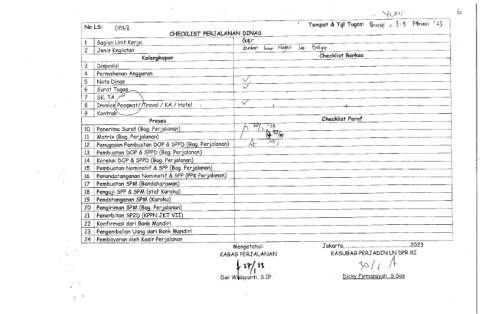 No LS: 0068
Tempat & Tgl Tugas:
CHECKLIST PERJALANAN DINAS
1 Bagian Unit Kerja
2 Jenis Kegiatan
Kelengkapan Checklist Berkas
3 Disposisi
4 Permohonan Anggaran
5 Nota Dinas
6 Surat Tugas
7 SK, TA
8 Invoice Pesawat/Travel / KA / Hotel
9 Kontrak
Proses Checklist Paraf
10 Penerima Surat (Bag. Perjalanan)
11 Matrix (Bag. Perjalanan)
12 Penugasan Pembuatan DOP & SPPD (Bag. Perjalanan)
13 Pembuatan DOP & SPPD (Bag. Perjalanan)
14 Koreksi DOP & SPPD (Bag. Perjalanan)
15 Pembuatan Nominatif & SPP (Bag. Perjalanan)
16 Penandatanganan Nominatif & SPP (PPK Perjalanan)
17 Pembuatan SPM (Bendaharawan)
18 Penguji SPP & SPM (staf Karoku)
19 Pendatanganan SPM (Karoku)
20 Pengiriman SPM (Bag. Perjalanan)
21 Penerbitan SP2D (KPPN JKT VII)
22 Konfirmasi dari Bank Mandiri
23 Pengembalian Uang dari Bank Mandiri
24 Pembayaran oleh Kasir Perjalanan
Mengetahui:
KABAG PERJALANAN
Dwi Widayanti, S.IP.
Jakarta, 2023
KASUBAG PERJADIN LN DPR RI
30/1
Dicky Firmansyah, S.Sos